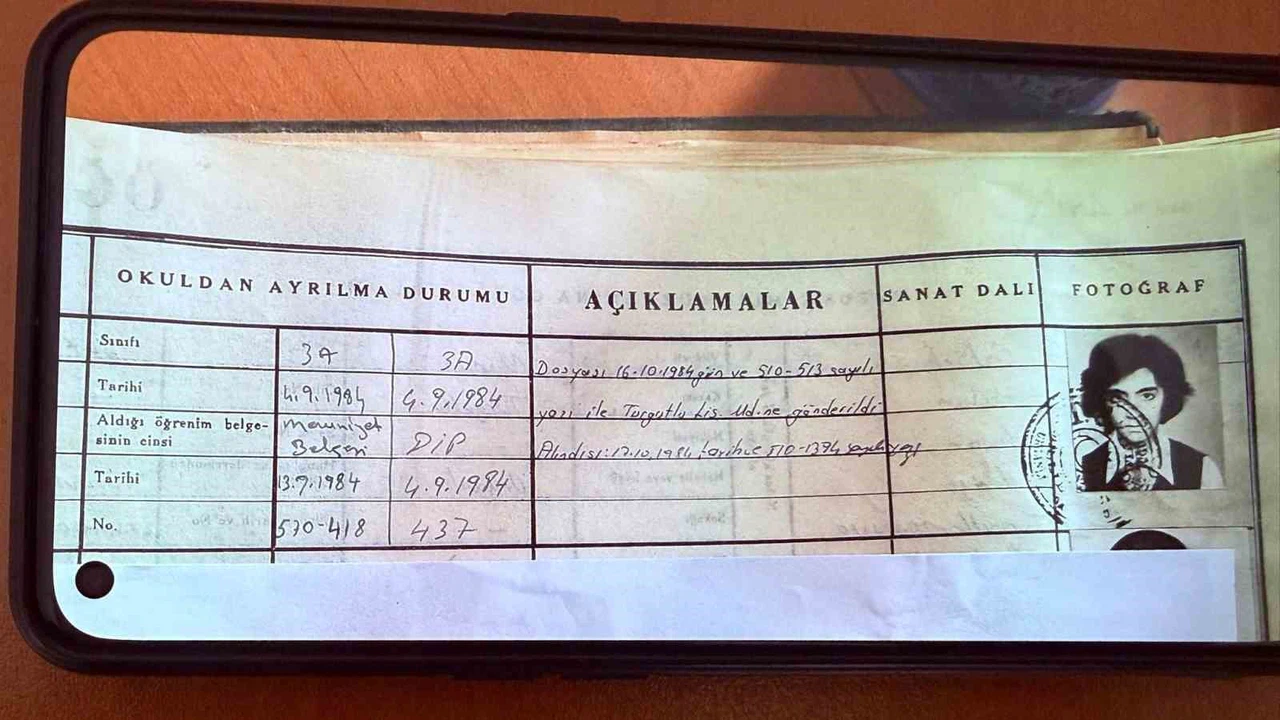 OKULDAN AYRILMA DURUMU
AÇIKLAMALAR
SANAT DALI
FOTOĞRAF
Sınıfı 3A 3A
Tarihi 4.9.1984 4.9.1984
Aldığı öğrenim belge-
sinin cinsi
Mezuniyet
Belgesi
DİP
Tarihi 13.9.1984 4.9.1984
No. 570-418 437
Dosyası 16.10.1984 gün ve 510-513 sayılı
yazı ile Turgutlu Lis. Md.ne gönderildi
Alındısı: 17.10.1984 tarih ve 510-1374